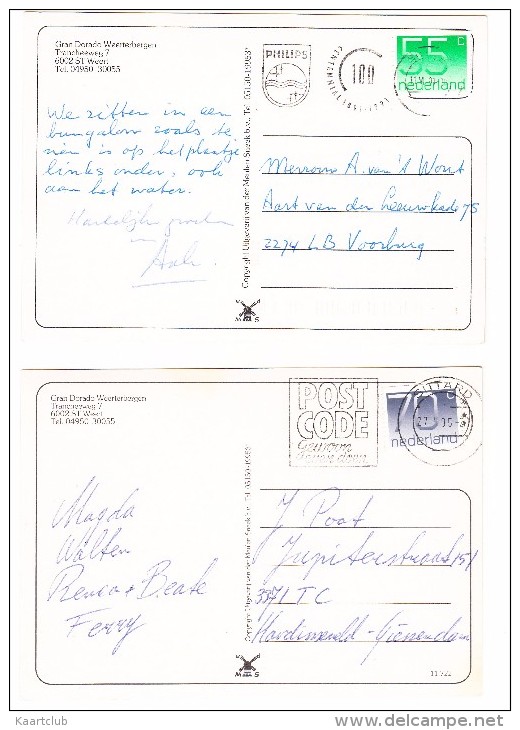 Gran Dorado Weerterbergen
Trancheeweg 7
6002 ST Weert
Tel. 04950-30055
PHILIPS
100
CENTENNIAL 1891-1991
55 c
nederland
We zitten in een
bungalow zoals te
zien is op het plaatje
links onder, ook
aan het water.
Hartelijke groeten
van
Mevrouw A. van 't Wout
Aart van der Leeuwkade 75
2274 LB Voorburg
Copyright Uitgeverij van der Meulen Sneek b.v. Tel. 05150-19953
M S
Gran Dorado Weerterbergen
Trancheeweg 7
6002 ST Weert
Tel. 04950-30055
POST
CODE
Gewoon
SITTARD
70 c
nederland
Magda
Walter
Renia + Beate
Ferry
J. Poot
Jupiterstraat 151
3371 TC
Hardinxveld-Giessendam
Copyright Uitgeverij van der Meulen Sneek b.v. Tel. 05150-19953
M S
Kaartclub
www.delcampe.net